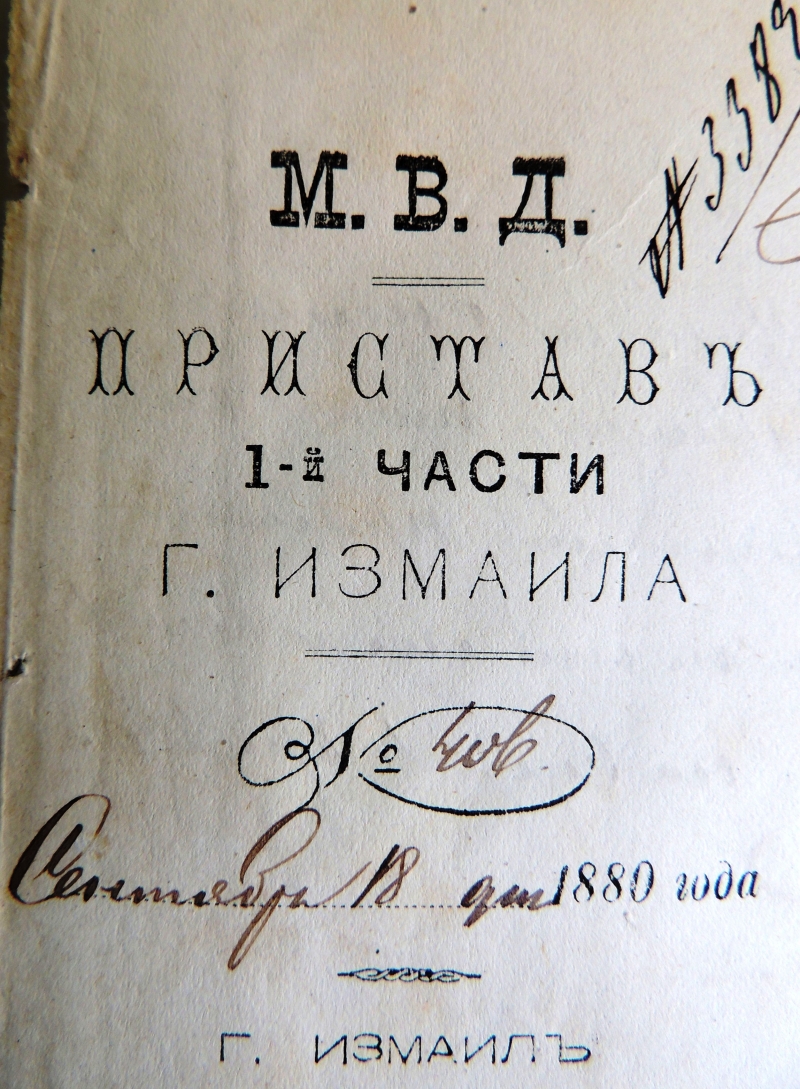 № 338
М. В. Д.
ПРИСТАВЪ
1-й ЧАСТИ
Г. ИЗМАИЛА
№ 406.
Сентября 18 дня 1880 года
Г. ИЗМАИЛЪ